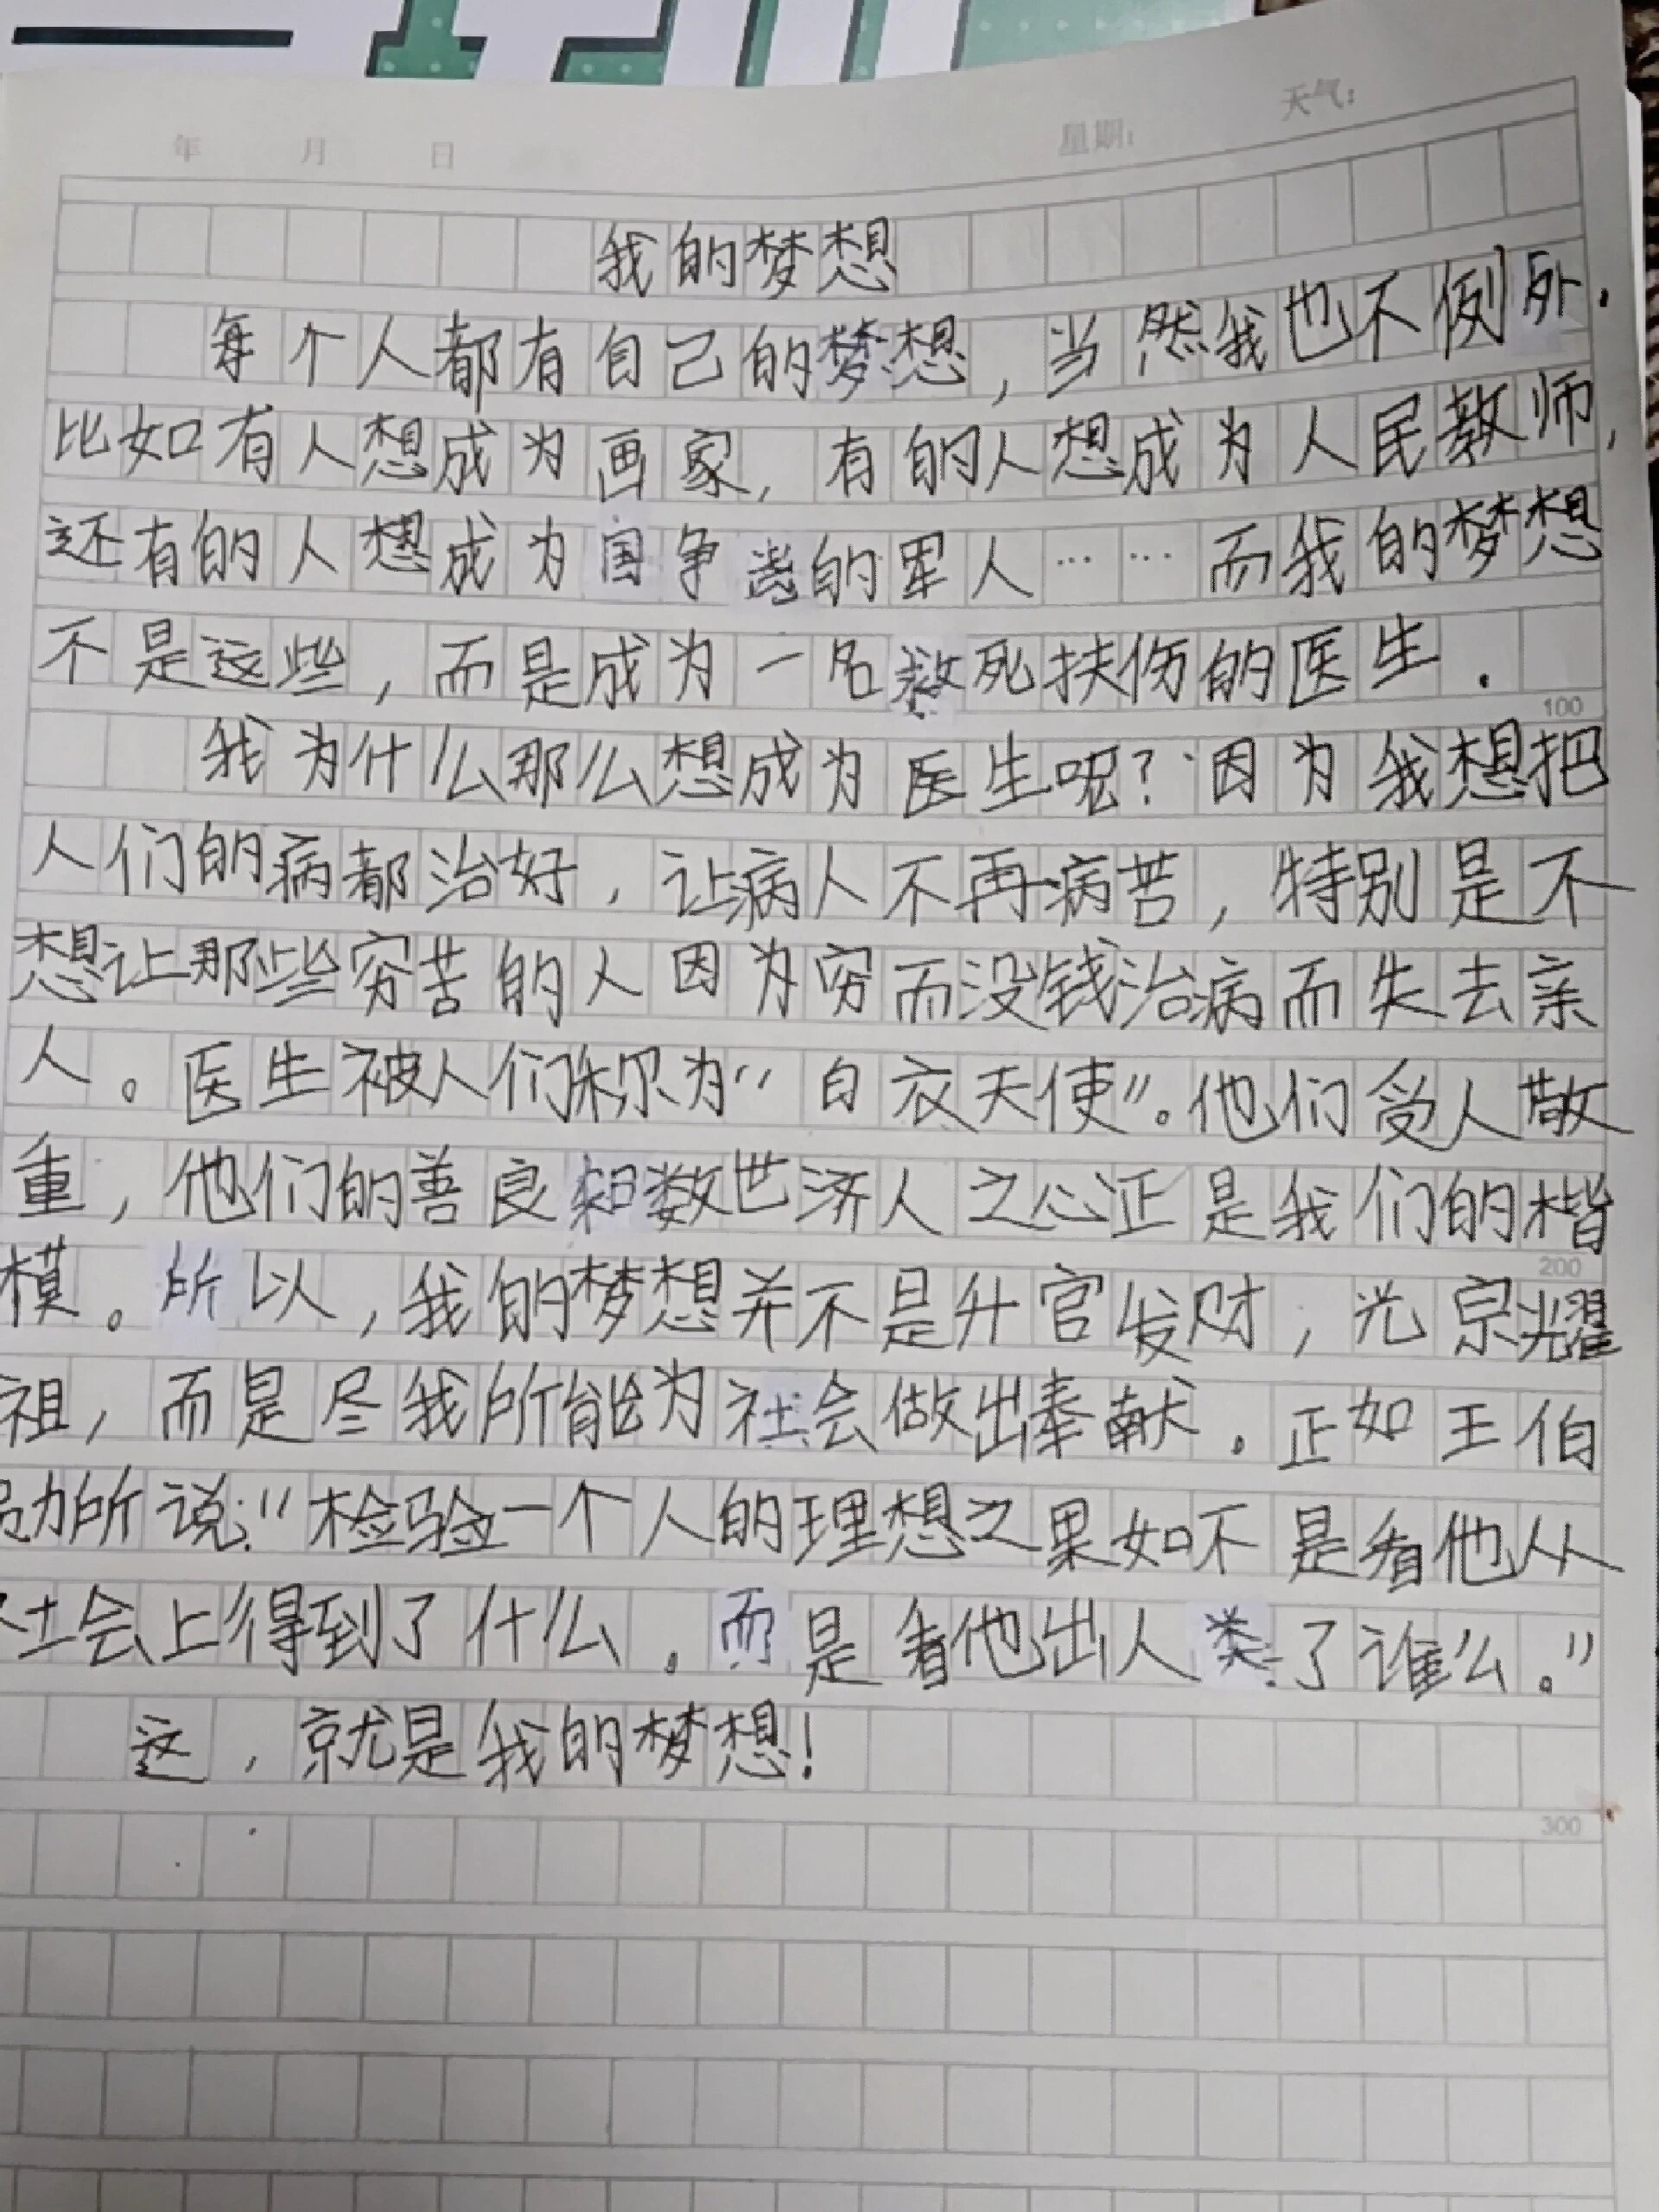 年 月 日 星期: 天气:
我的梦想
每个人都有自己的梦想,当然我也不例外.
比如有人想成为画家,有的人想成为人民教师,
还有的人想成为国争的军人……而我的梦想
不是这些,而是成为一名救死扶伤的医生.
100
我为什么那么想成为医生呢?因为我想把
人们的病都治好,让病人不再病苦,特别是不
想让那些穷苦的人因为穷而没钱治病而失去亲
人。医生被人们称为“白衣天使”。他们受人敬
重,他们的善良和数世济人之心正是我们的楷
200
模。所以,我的梦想并不是升官发财,光宗耀
祖,而是尽我所能为社会做出奉献.正如王伯
勋所说:“检验一个人的理想之果如不是看他从
社会上得到了什么.而是看他出人类了谁么。”
这,就是我的梦想!
300